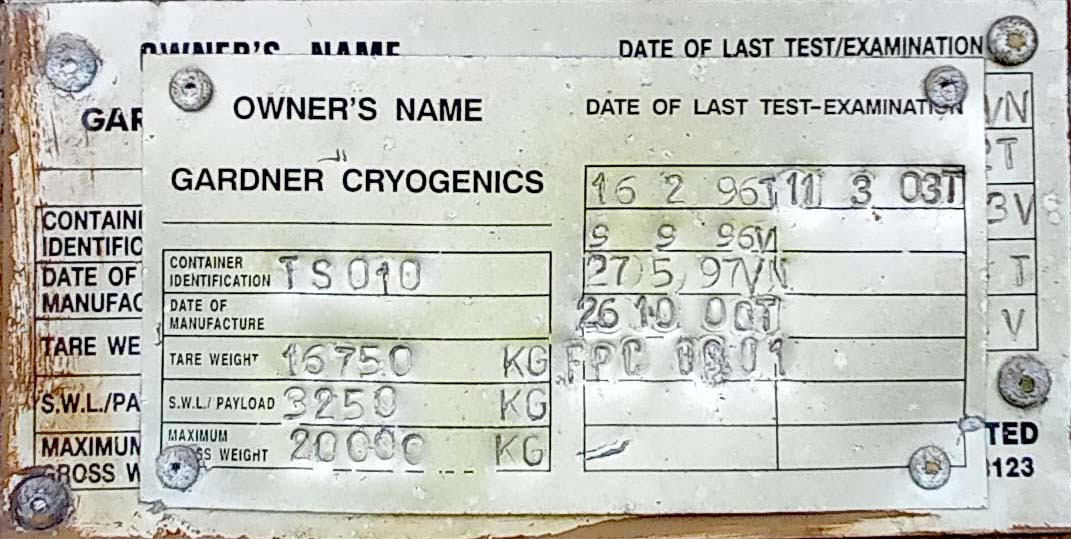 OWNER'S NAME
DATE OF LAST TEST/EXAMINATION
OWNER'S NAME
DATE OF LAST TEST-EXAMINATION
GAR
VN
GARDNER CRYOGENICS
16 2 96T 11 3 03T
T
9 9 96V
3V
CONTAINE
IDENTIFIC
CONTAINER
IDENTIFICATION TS010
27 5 97VN
T
DATE OF
MANUFAC
DATE OF
MANUFACTURE
26 10 00T
V
TARE WE
TARE WEIGHT 16750 KG
FPC 0801
S.W.L./PA
S.W.L./ PAYLOAD 3250 KG
MAXIMUM
GROSS W
MAXIMUM
SS WEIGHT 20000 KG
TED
123